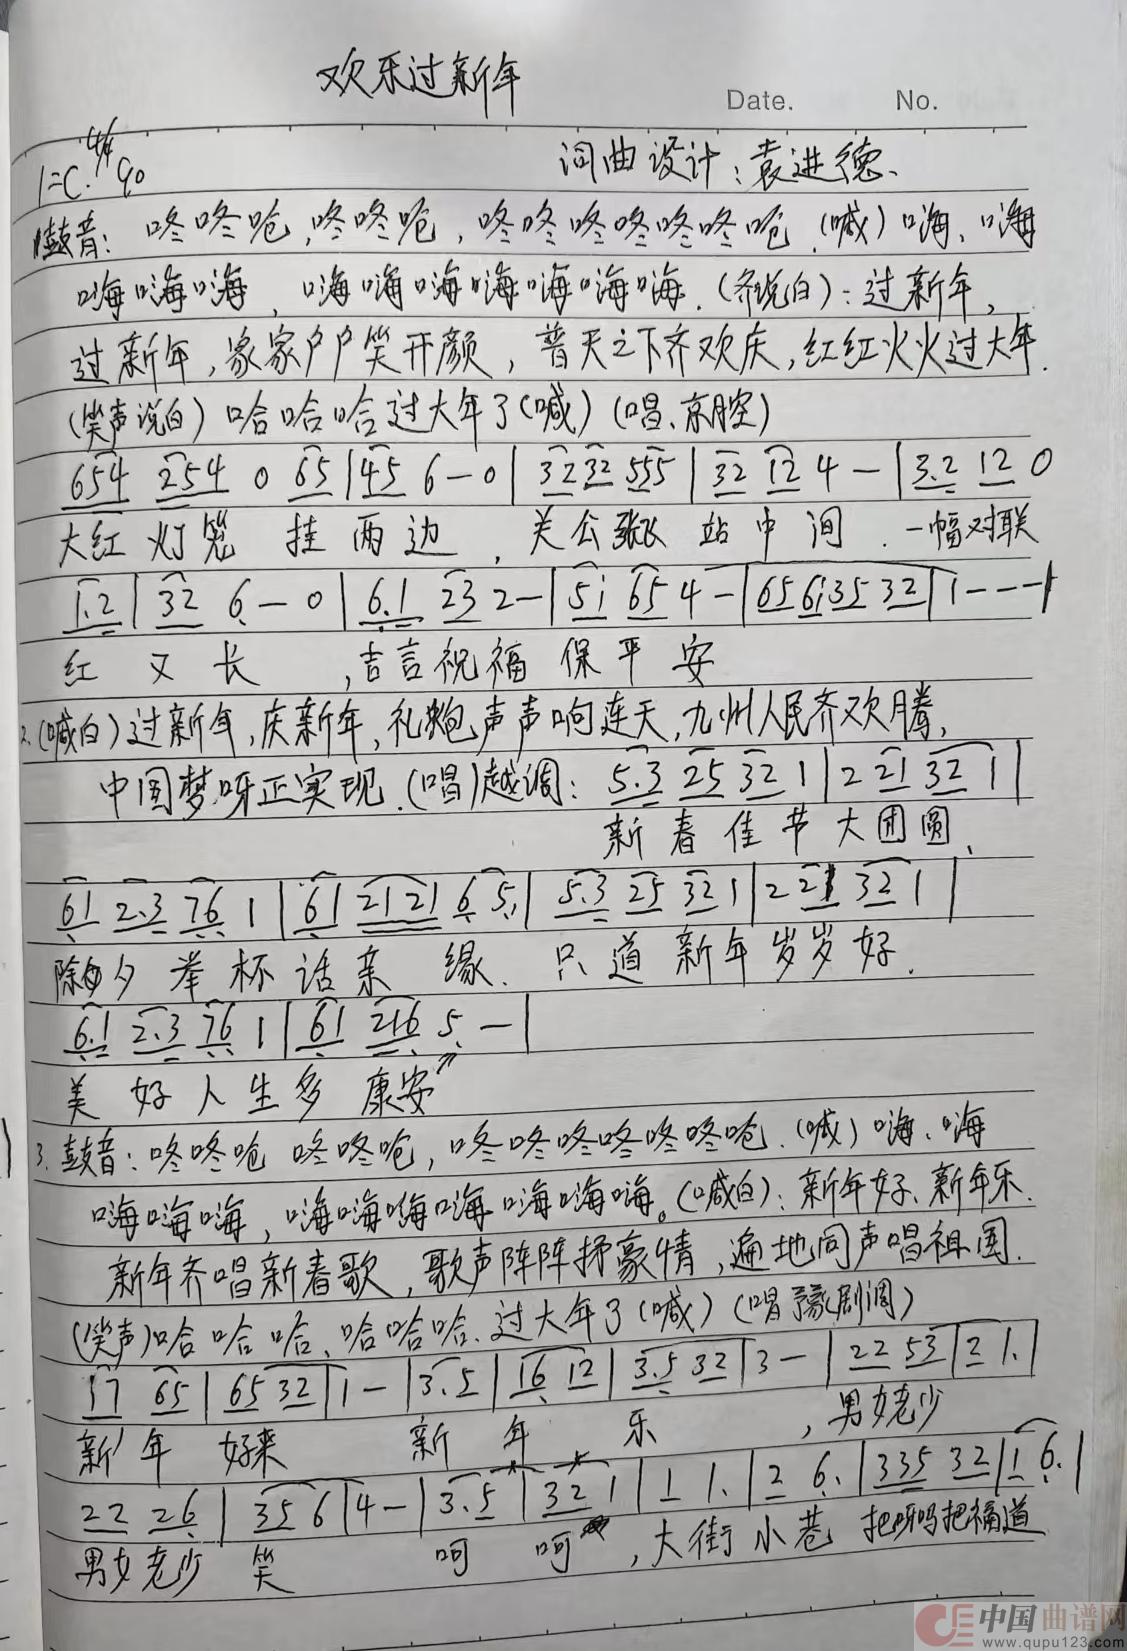 欢乐过新年
Date. No.
1=C 4/4 90
词曲设计:袁进德、
鼓音: 咚咚呛,咚咚呛,咚咚咚咚咚咚呛.(喊)嗨、嗨
嗨嗨嗨,嗨嗨嗨嗨嗨嗨嗨.(齐说白):过新年,
过新年,家家户户笑开颜,普天之下齐欢庆,红红火火过大年.
(笑声说白)哈哈哈过大年了(喊)(唱、京腔)
654 254 0 65|45 6-0|3232 555|32 12 4-|3.2 12 0
大红灯笼 挂两边,关公张飞站中间.一幅对联
1.2|32 6-0|6.1 23 2-|5i 65 4-|65 6i35 32|1---|
红又长,吉言祝福保平安
2.(喊白)过新年,庆新年,礼炮声声响连天,九州人民齐欢腾,
中国梦呀正实现.(唱)越调: 5.3 25 32 1|2 21 32 1|
新春佳节大团圆、
61 2.3 76 1|61 2121 6 5|5.3 25 32 1|2 21 32 1|
除夕举杯话亲缘.只道新年岁岁好.
6.1 2.3 76 1|61 216 5-|
美好人生多康安
3.鼓音:咚咚呛 咚咚呛,咚咚咚咚咚咚呛.(喊)嗨、嗨
嗨嗨嗨,嗨嗨嗨嗨嗨嗨嗨。(喊白):新年好、新年乐.
新年齐唱新春歌,歌声阵阵抒豪情,遍地同声唱祖国.
(笑声)哈哈哈、哈哈哈、过大年了(喊)(唱豫剧调)
17 65|65 32|1-|3.5|16 12|3.5 32|3-|22 53|2 1.|
新年好来 新年乐,男女老少
22 26|35 6|4-|3.5|32 1|1 1.|2 6.|335 32|1 6.|
男女老少笑 呵呵,大街小巷 把呀吗把福道
中国曲谱网
www.qupu123.com